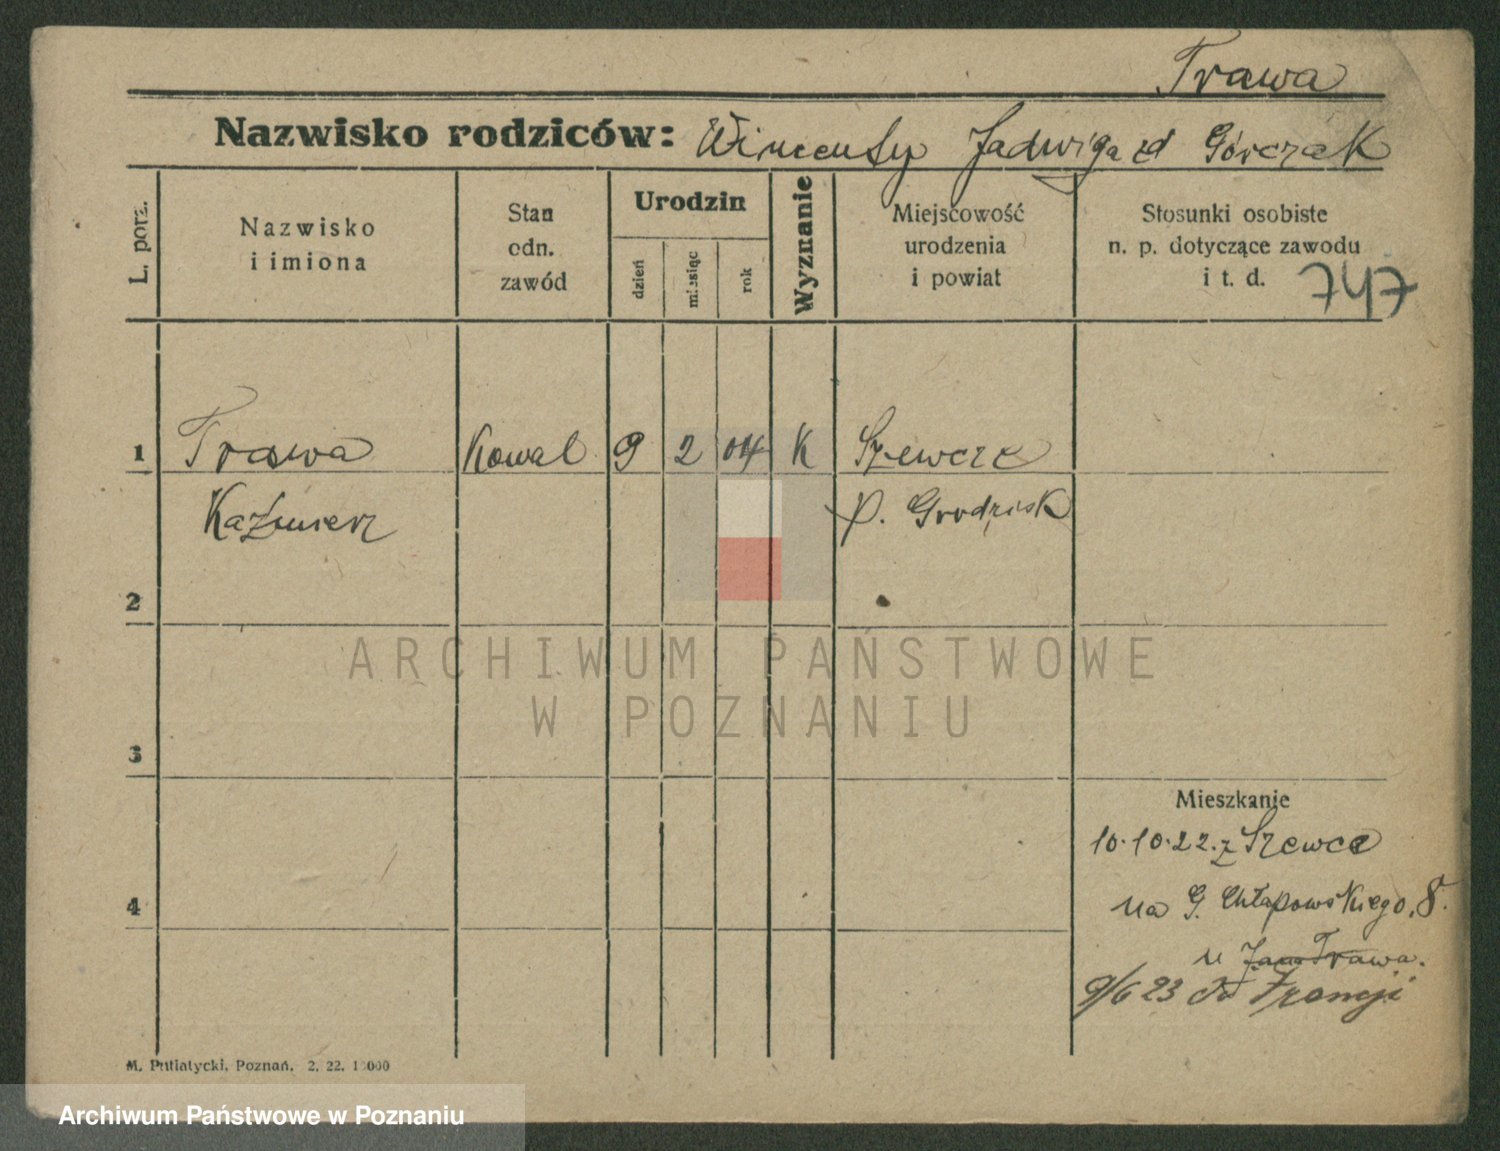 Trawa
Nazwisko rodziców: Wincenty Jadwiga zd Górczak
L. porz.
Nazwisko
i imiona
Stan
odn.
zawód
Urodzin
dzień
miesiąc
rok
Wyznanie
Miejscowość
urodzenia
i powiat
Stosunki osobiste
n. p. dotyczące zawodu
i t. d.
747
1 Trawa Kowal 9 2 04 K Szewcze
Kaźmierz p. Grodzisk
2
ARCHIWUM PAŃSTWOWE
W POZNANIU
3
Mieszkanie
10.10.22. z Szewce
4 na G. Chłapowskiego, 8.
u Jana Trawa.
9/6 23 do Francji
M. Putiatycki, Poznań. 2. 22. 10000
Archiwum Państwowe w Poznaniu